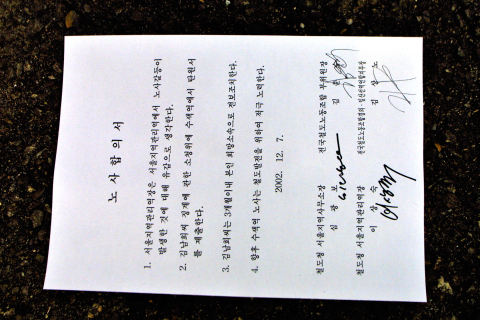 노 사 합 의 서
1. 서울지역관리역에서 노사갈등이
발생한 것에 대해 유감으로 생각한다.
2. 김남희씨 징계에 관한 소청위에 수색역에서 탄원서
를 제출한다.
3. 김남희씨는 3개월이내 본인 희망소속으로 전보조치한다.
4. 향후 수색역 노사는 철도발전을 위하여 적극 노력한다.
2002. 12. 7.
철도청 서울지역사무소장 전국철도노동조합 부위원장
심 광 보 김
철도청 서울지역관리역장
이 성 숙 김 상 노